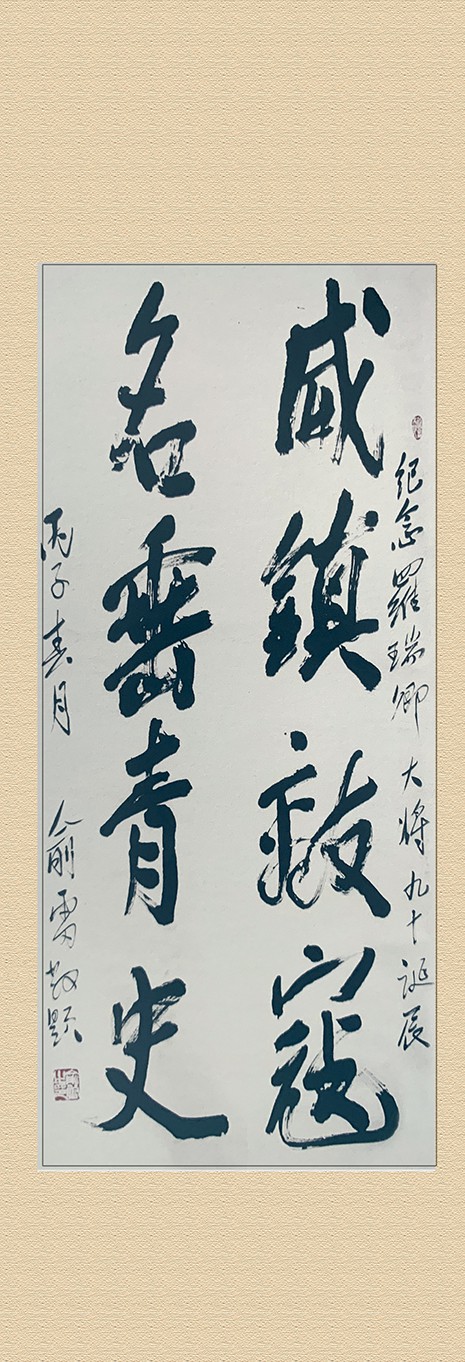 纪念羅瑞卿 大将九十诞辰
威鎮敵寇
名垂青史
丙子春月 俞雷敬题